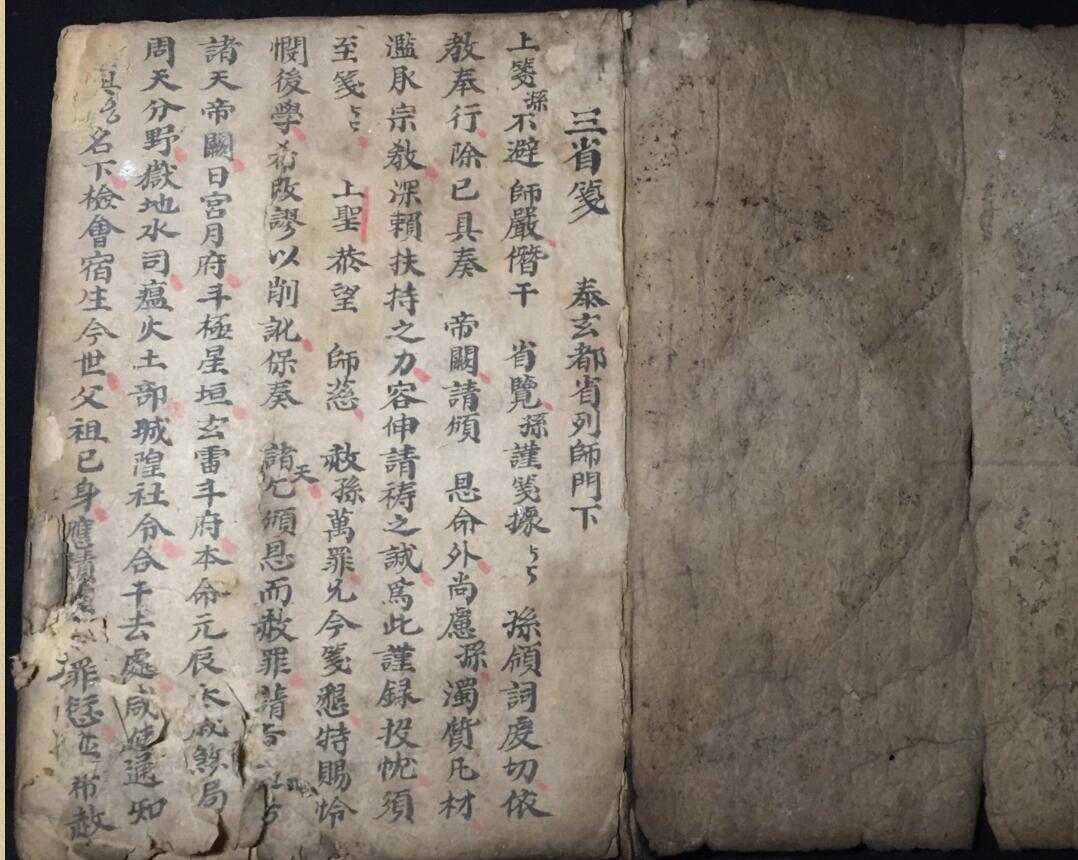 三省箋 泰玄都省列師門下
上箋孫不避 師嚴僭干 省覽孫謹箋據 孫領詞虔切依
教奉行除已具奏 帝闕請頒 恩命外尚慮孫濁質凡材
濫派宗教深賴扶持之力容伸請祷之誠為此謹録投忱須
至箋 上聖菸望 師慈 赦孫萬罪允今箋懇特賜怜
憫後學希改謬以削訛保奏 諸天乞頒恩而赦罪請
諸天帝闕日宮月府斗極星垣玄雷斗府本命元辰太歲 局
周天分野嶽地水司瘟火土部城隍社令合干去處咸 通知
名下檢會宿生今世父祖已身應 罪愆 希赦